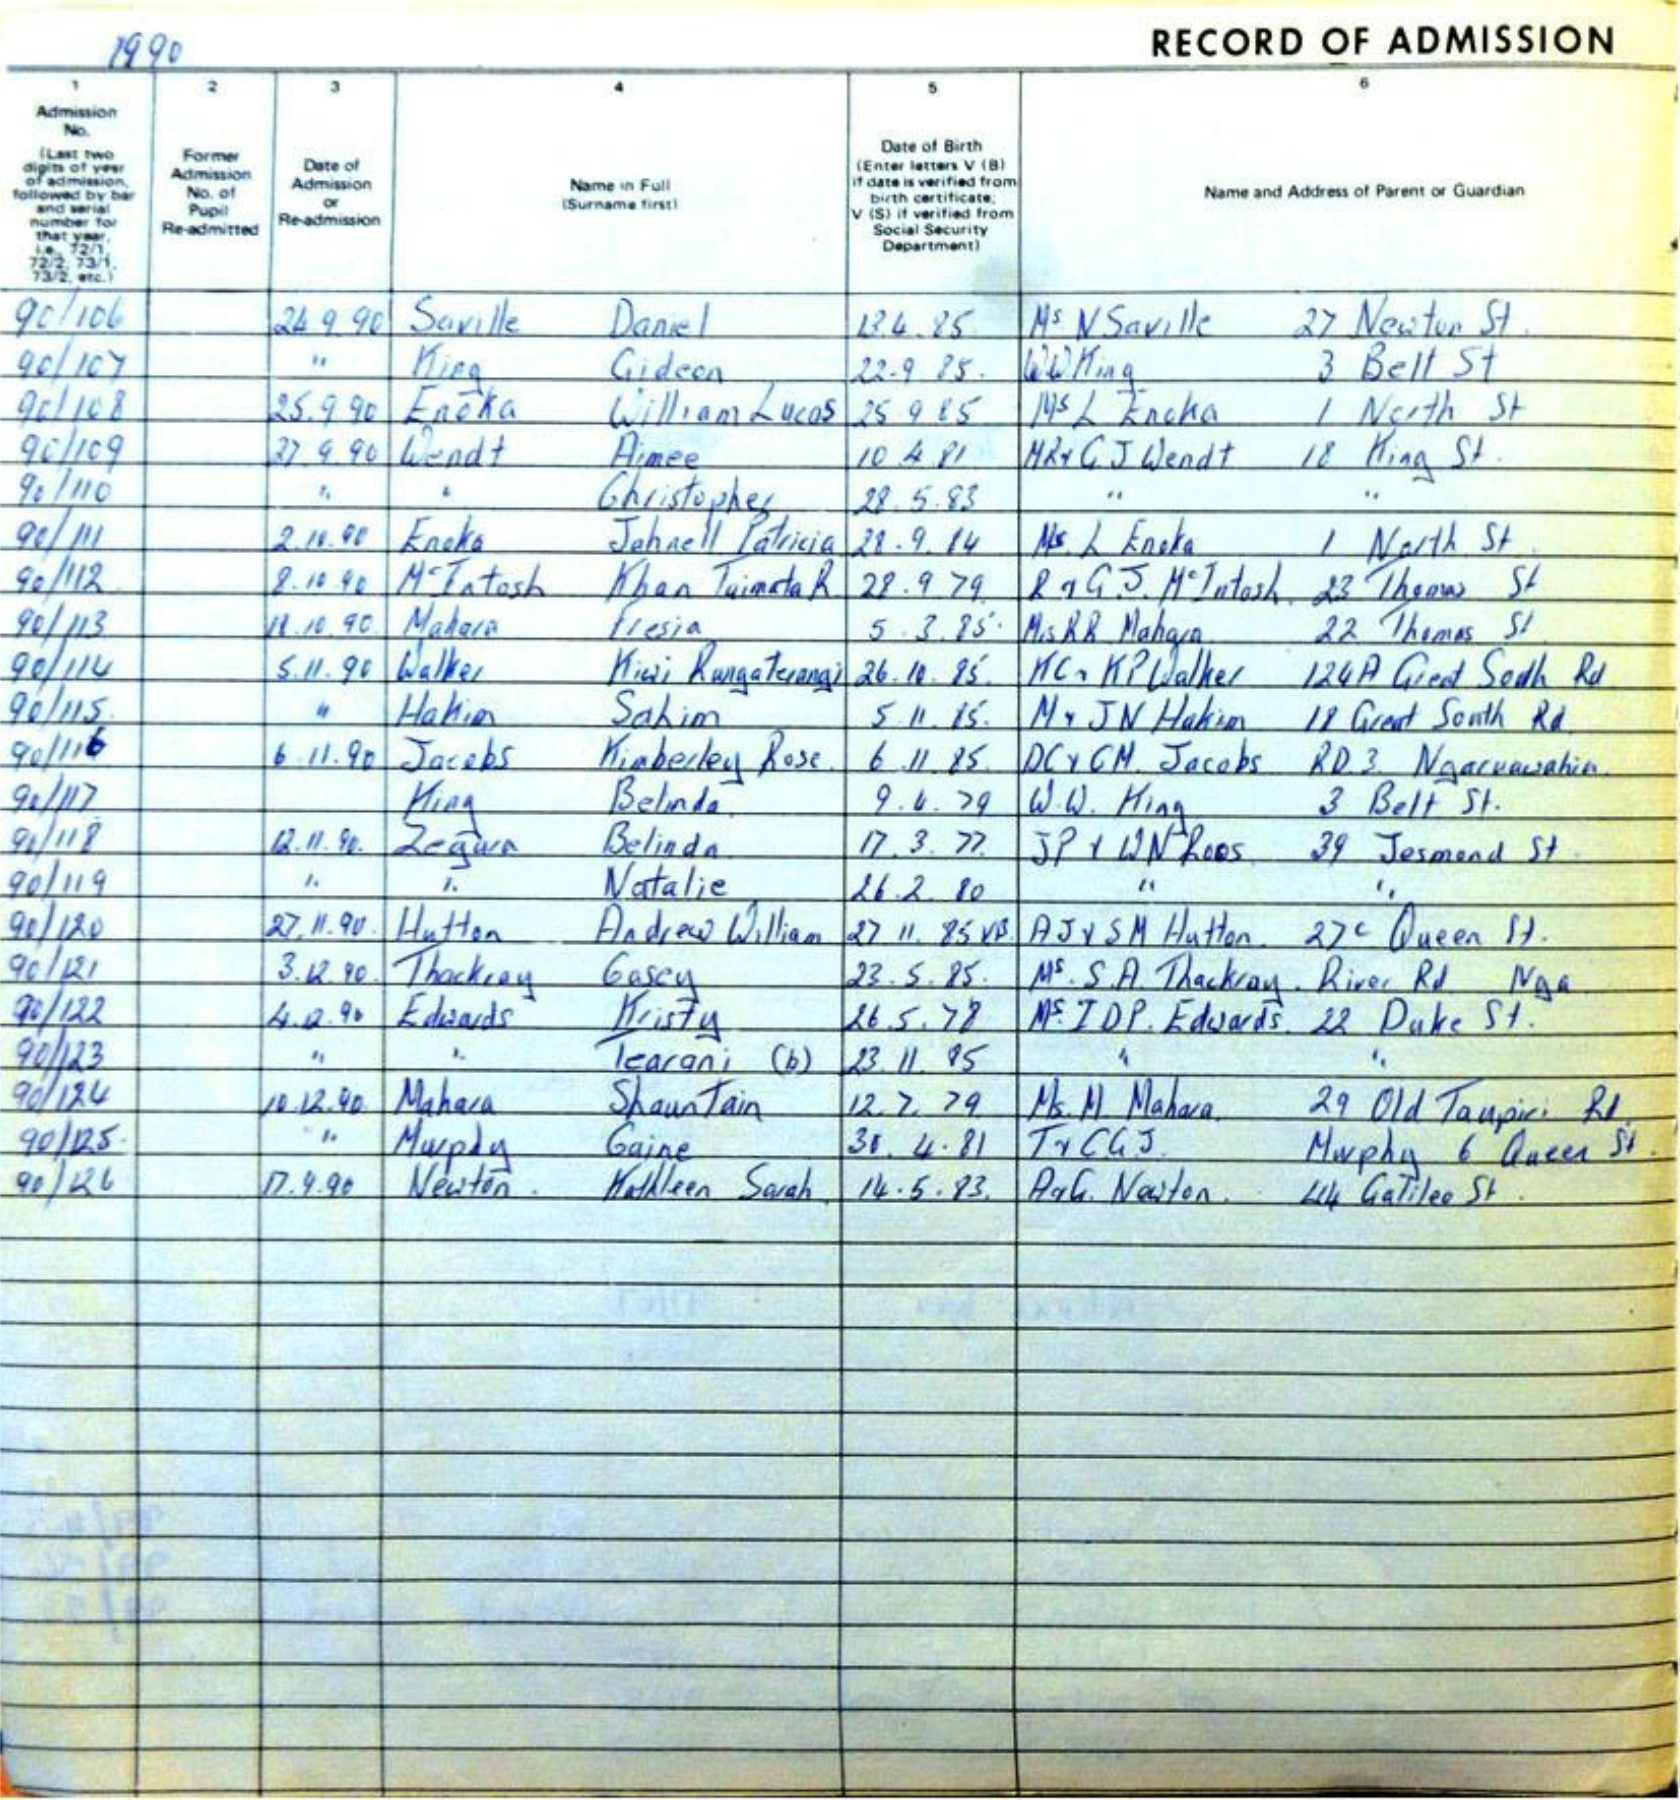 1990
RECORD OF ADMISSION
1 2 3 4 5 6
Admission No. (Last two digits of year of admission, followed by bar and serial number for that year, i.e., 72/1, 72/2, 73/1, 73/2, etc.)
Former Admission No. of Pupil Re-admitted
Date of Admission or Re-admission
Name in Full (Surname first)
Date of Birth (Enter letters V (B) if date is verified from birth certificate; V (S) if verified from Social Security Department)
Name and Address of Parent or Guardian
90/106 24.9.90 Saville Daniel 13.4.85 Ms N Saville 27 Newton St.
90/107 " King Gideon 22.9.85. W W King 3 Belt St
90/108 25.9.90 Enoka William Lucas 25 9 85 Ms L Enoka 1 North St
90/109 27.9.90 Wendt Aimee 10 4 81 MR & G J Wendt 18 King St.
90/110 " " Christopher 28.5.83 " "
90/111 2.10.90 Enoka Jahnell Patricia 28.9.84 Ms. L Enoka 1 North St
90/112 8.10.90 McIntosh Khan Taimata R 28.9.79 R & G.J. McIntosh. 23 Thomas St
90/113 .10.90 Mahara Fresia 5.3.85. Ms RR Mahara 22 Thomas St
90/114 5.11.90 Walker Kiwi Rangaterangi 26.10.85 KC & KP Walker 124A Great South Rd
90/115 " Hakim Sahim 5.11.85. M & JN Hakim 18 Great South Rd
90/116 6.11.90 Jacobs Kimberley Rose. 6.11.85. DC & CM. Jacobs RD.3. Ngaruawahia.
90/117 King Belinda 9.4.79 W.W. King 3 Belt St.
90/118 12.11.90. Belinda 17.3.77. JP & WN Roos 39 Jesmond St.
90/119 " " Natalie 26.2.80 " "
90/120 27.11.90. Hutton Andrew William 27.11.85 VB. AJ & SM Hutton. 27c Queen St.
90/121 3.12.90. Thackray Casey 23.5.85. Ms. S.A. Thackray. River Rd Nga
90/122 4.12.90 Edwards Kristy 26.5.78 Ms. I D P. Edwards. 22 Duke St.
90/123 " " Tearani (b) 23.11.85 " "
90/124 10.12.90. Mahara Shaun Tain 12.7.79 Ms. M. Mahara. 29 Old Taupiri Rd.
90/125. " Murphy Gaine 30.4.81 T & C G J. Murphy 6 Queen St.
90/126 17.9.90 Newton. Kathleen Sarah. 14.5.83. A & G. Newton. 44 Galileo St.